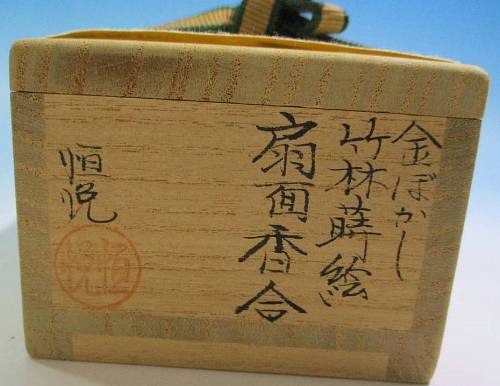 金ぼかし
竹林蒔絵
扇面香合
恒悦
恒悦